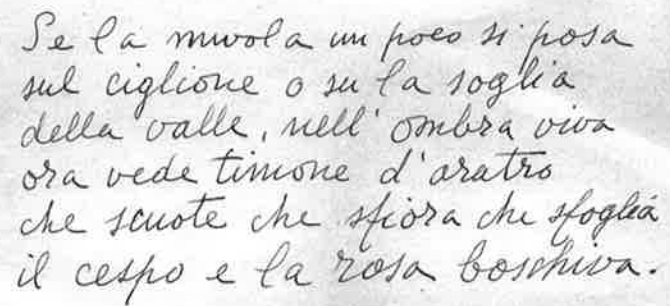 Se la nuvola un poco si posa
sul ciglione o su la soglia
della valle, nell' ombra viva
ora vede timone d'aratro
che scuote che sfiora che sfoglia
il cespo e la rosa boschiva.